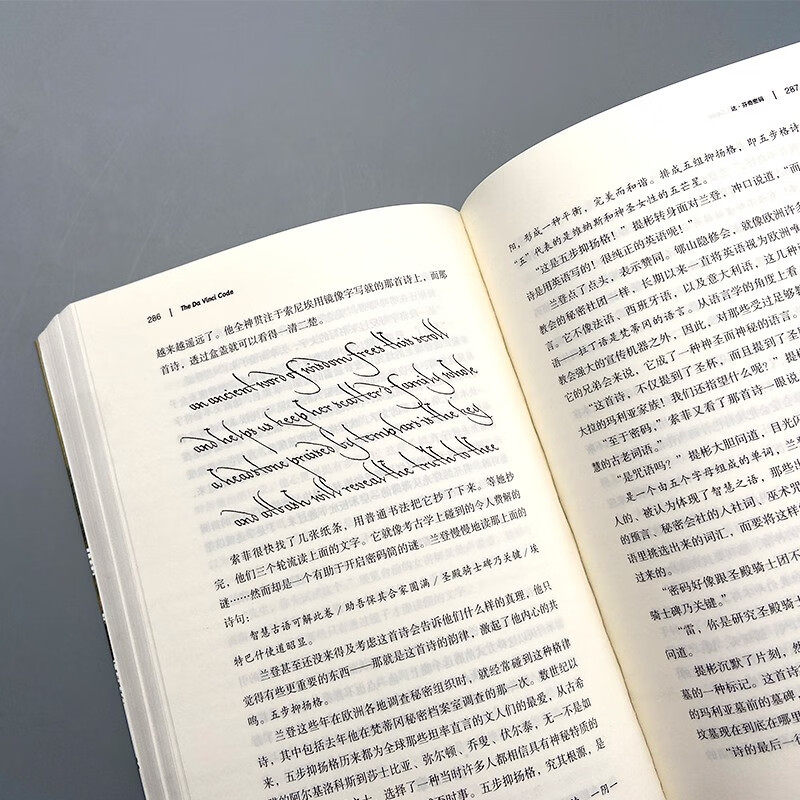 286 | The Da Vinci Code
越来越遥远了。他全神贯注于索尼埃用镜像字写就的那首诗上，而那
首诗，透过盒盖就可以看得一清二楚。
an ancient word of wisdom frees this scroll
and helps us keep her scatter'd family whole
a headstone praised by templars is the key
and atbash will reveal the truth to thee
索菲很快找了几张纸条，用普通书法把它抄了下来。等她抄
完，他们三个轮流读上面的文字。它就像考古学上碰到的令人费解的
谜……然而却是一个有助于开启密码筒的谜。兰登慢慢地读那上面的
诗句：
智慧古语可解此卷/助吾保其合家圆满/圣殿骑士碑乃关键/埃
特巴什使道昭显。
兰登甚至还没来得及考虑这首诗会告诉他们什么样的真理，他只
觉得有些更重要的东西——那就是这首诗的韵律，激起了他内心的共
鸣。五步抑扬格。
兰登这些年在欧洲各地调查秘密组织时，就经常碰到这种格律
诗，其中包括去年他在梵蒂冈秘密档案室调查的那一次。数世纪以
来，五步抑扬格历来都为全球那些坦率直言的文人们的最爱，从古希
腊的阿尔基洛科斯到莎士比亚、弥尔顿、乔叟、伏尔泰，无一不是如
选择了一种当时许多人都相信具有神秘特质的
时事。五步抑扬格，究其根源，是
达·芬奇密码 | 287
阳，形成一种平衡，完美而和谐。排成五组抑扬格，即五步格诗
“五”代表的是维纳斯和神圣女性的五芒星。
“这是五步抑扬格！”提彬转身面对兰登，冲口说道，“而
诗是用英语写的！很纯正的英语呢！”
兰登点了点头，表示赞同。郇山隐修会，就像欧洲许多
教会的秘密社团一样，长期以来一直将英语视为欧洲唯
言。它不像法语、西班牙语，以及意大利语，这几种
语——拉丁语是梵蒂冈的语言。从语言学的角度上看，
教会强大的宣传机器之外，因此，对那些受过足够教
它的兄弟会来说，它成了一种神圣而神秘的语言。
“这首诗，不仅提到了圣杯，而且提到了圣
大拉的玛利亚家族！我们还指望什么呢？”提
“至于密码，”索菲又看了那首诗一眼说
慧的古老词语。”
“是咒语吗？”提彬大胆问道，目光闪
是一个由五个字母组成的单词，兰
人的、被认为体现了智慧之语，那些
的预言、秘密会社的入社词、巫术咒
语里挑选出来的词汇，而要将这样
过来的。
“密码好像跟圣殿骑士团不
骑士碑乃关键。”
“雷，你是研究圣殿骑士
问道。
提彬沉默了片刻，然
墓的一种标记。这首诗
的玛利亚墓前的墓碑
坟墓现在到底在哪里
“诗的最后一行